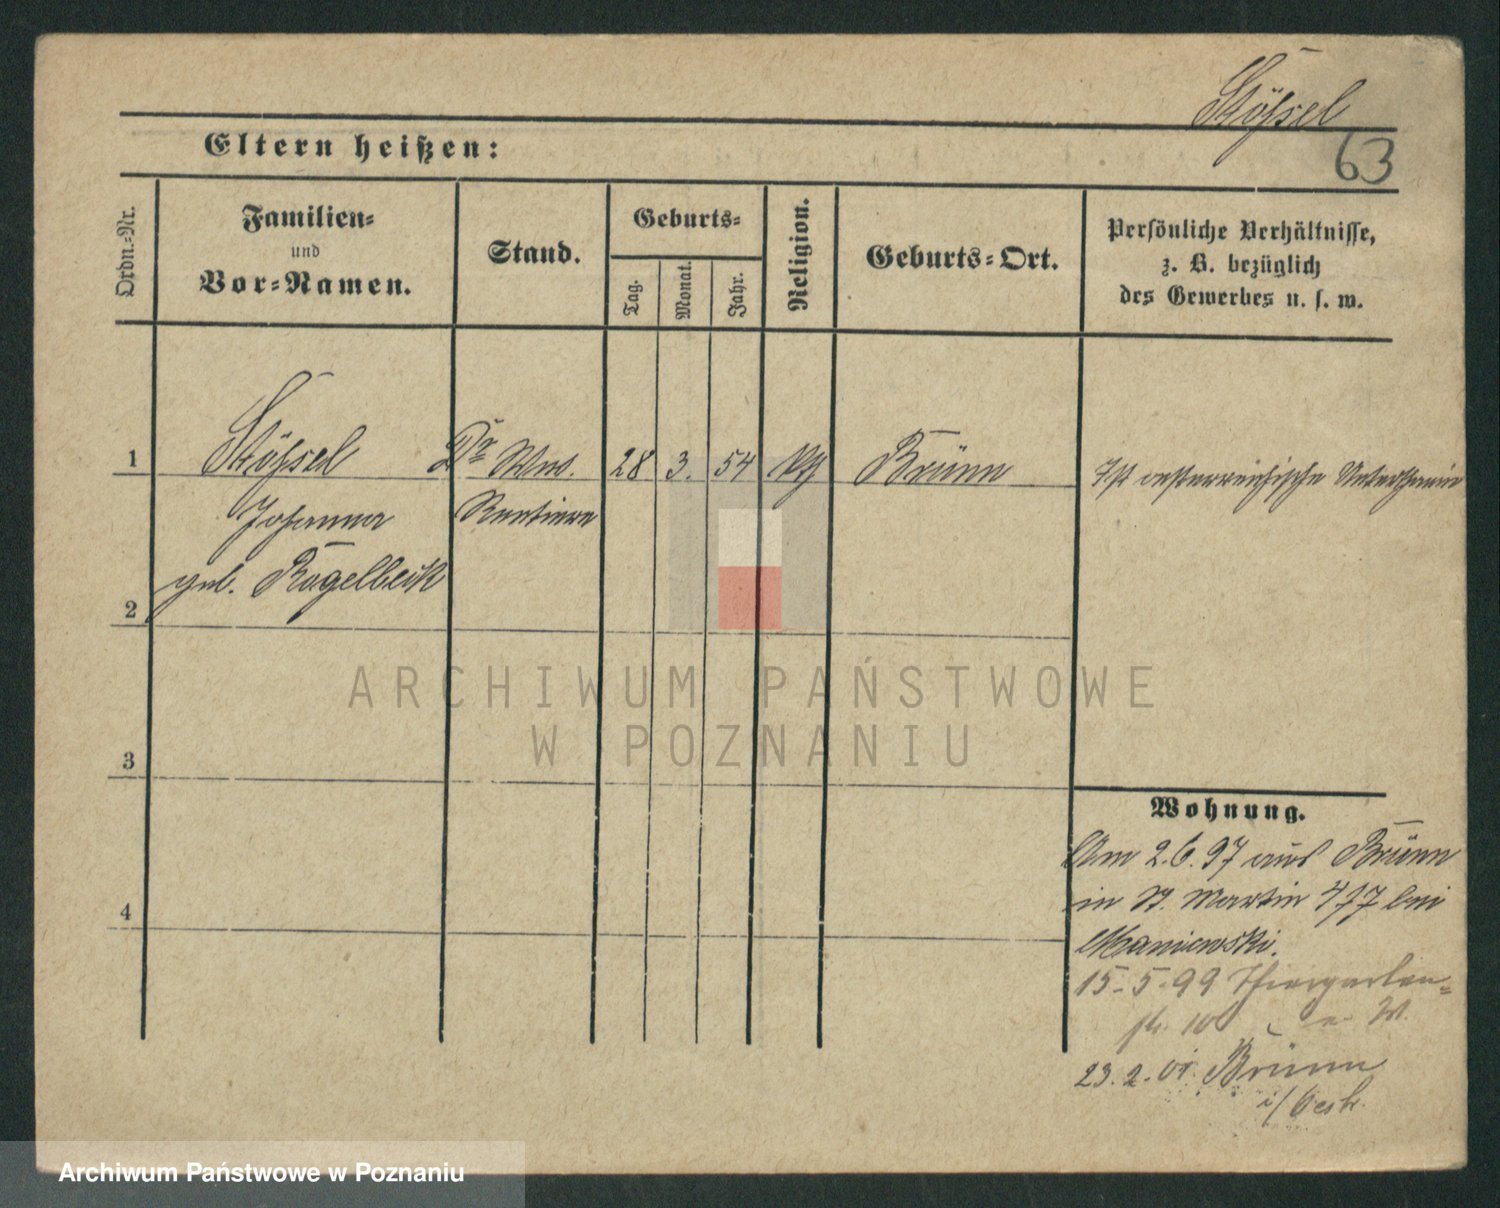 Stößel
63
Eltern heißen:
Ordn.-Nr.
Familien-
und
Vor-Namen.
Stand.
Geburts-
Tag.
Monat.
Jahr.
Religion.
Geburts-Ort.
Persönliche Verhältnisse,
z. B. bezüglich
des Gewerbes u. s. w.
1
Stößel
Dr Wwe.
28
3.
54
Brünn
Ist oesterreichische Unterthanin
Johanna
Rentiere
geb. Kogelbeck
2
3
4
Wohnung.
Am 2.6.97 aus Brünn
in St. Martin bei
Maniewski.
15.5.99 Thiergarten-
str. 10 W.
23.2.01. Brünn
i/Oestr.
ARCHIWUM PAŃSTWOWE
W POZNANIU
Archiwum Państwowe w Poznaniu